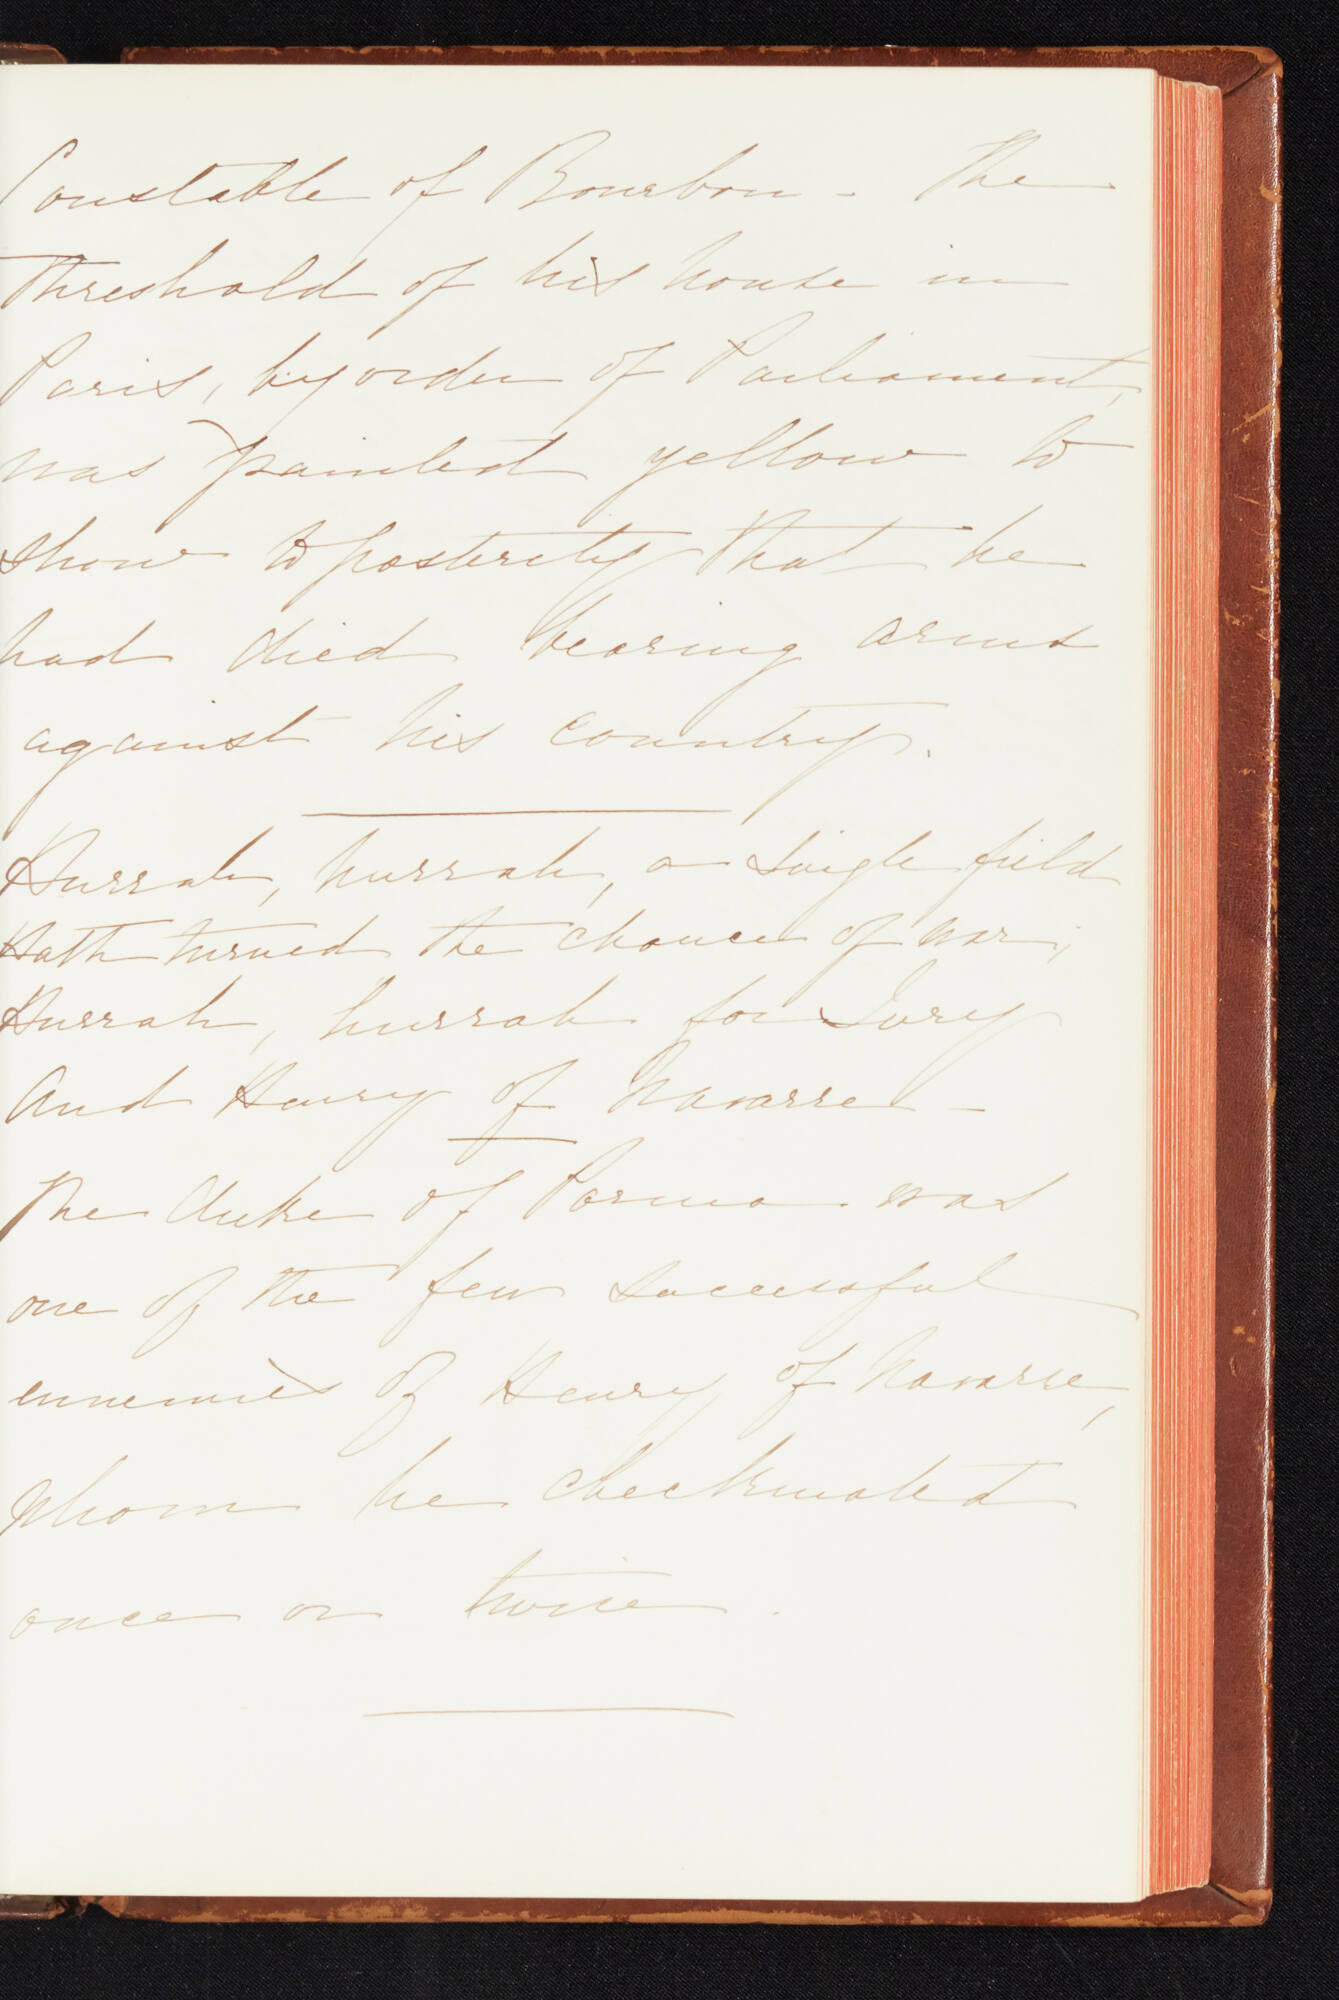 Constable of Bourbon - The
threshold of his house in
Paris, by order of Parliament,
was painted yellow to
show to posterity that he
had died bearing arms
against his country.
Hurrah, hurrah, a single field
Hath turned the chance of war;
Hurrah, hurrah for Ivry
And Henry of Navarre -
The duke of Parma was
one of the few successful
ennemies of Henry of Navarre,
whom he checkmated
once or twice.